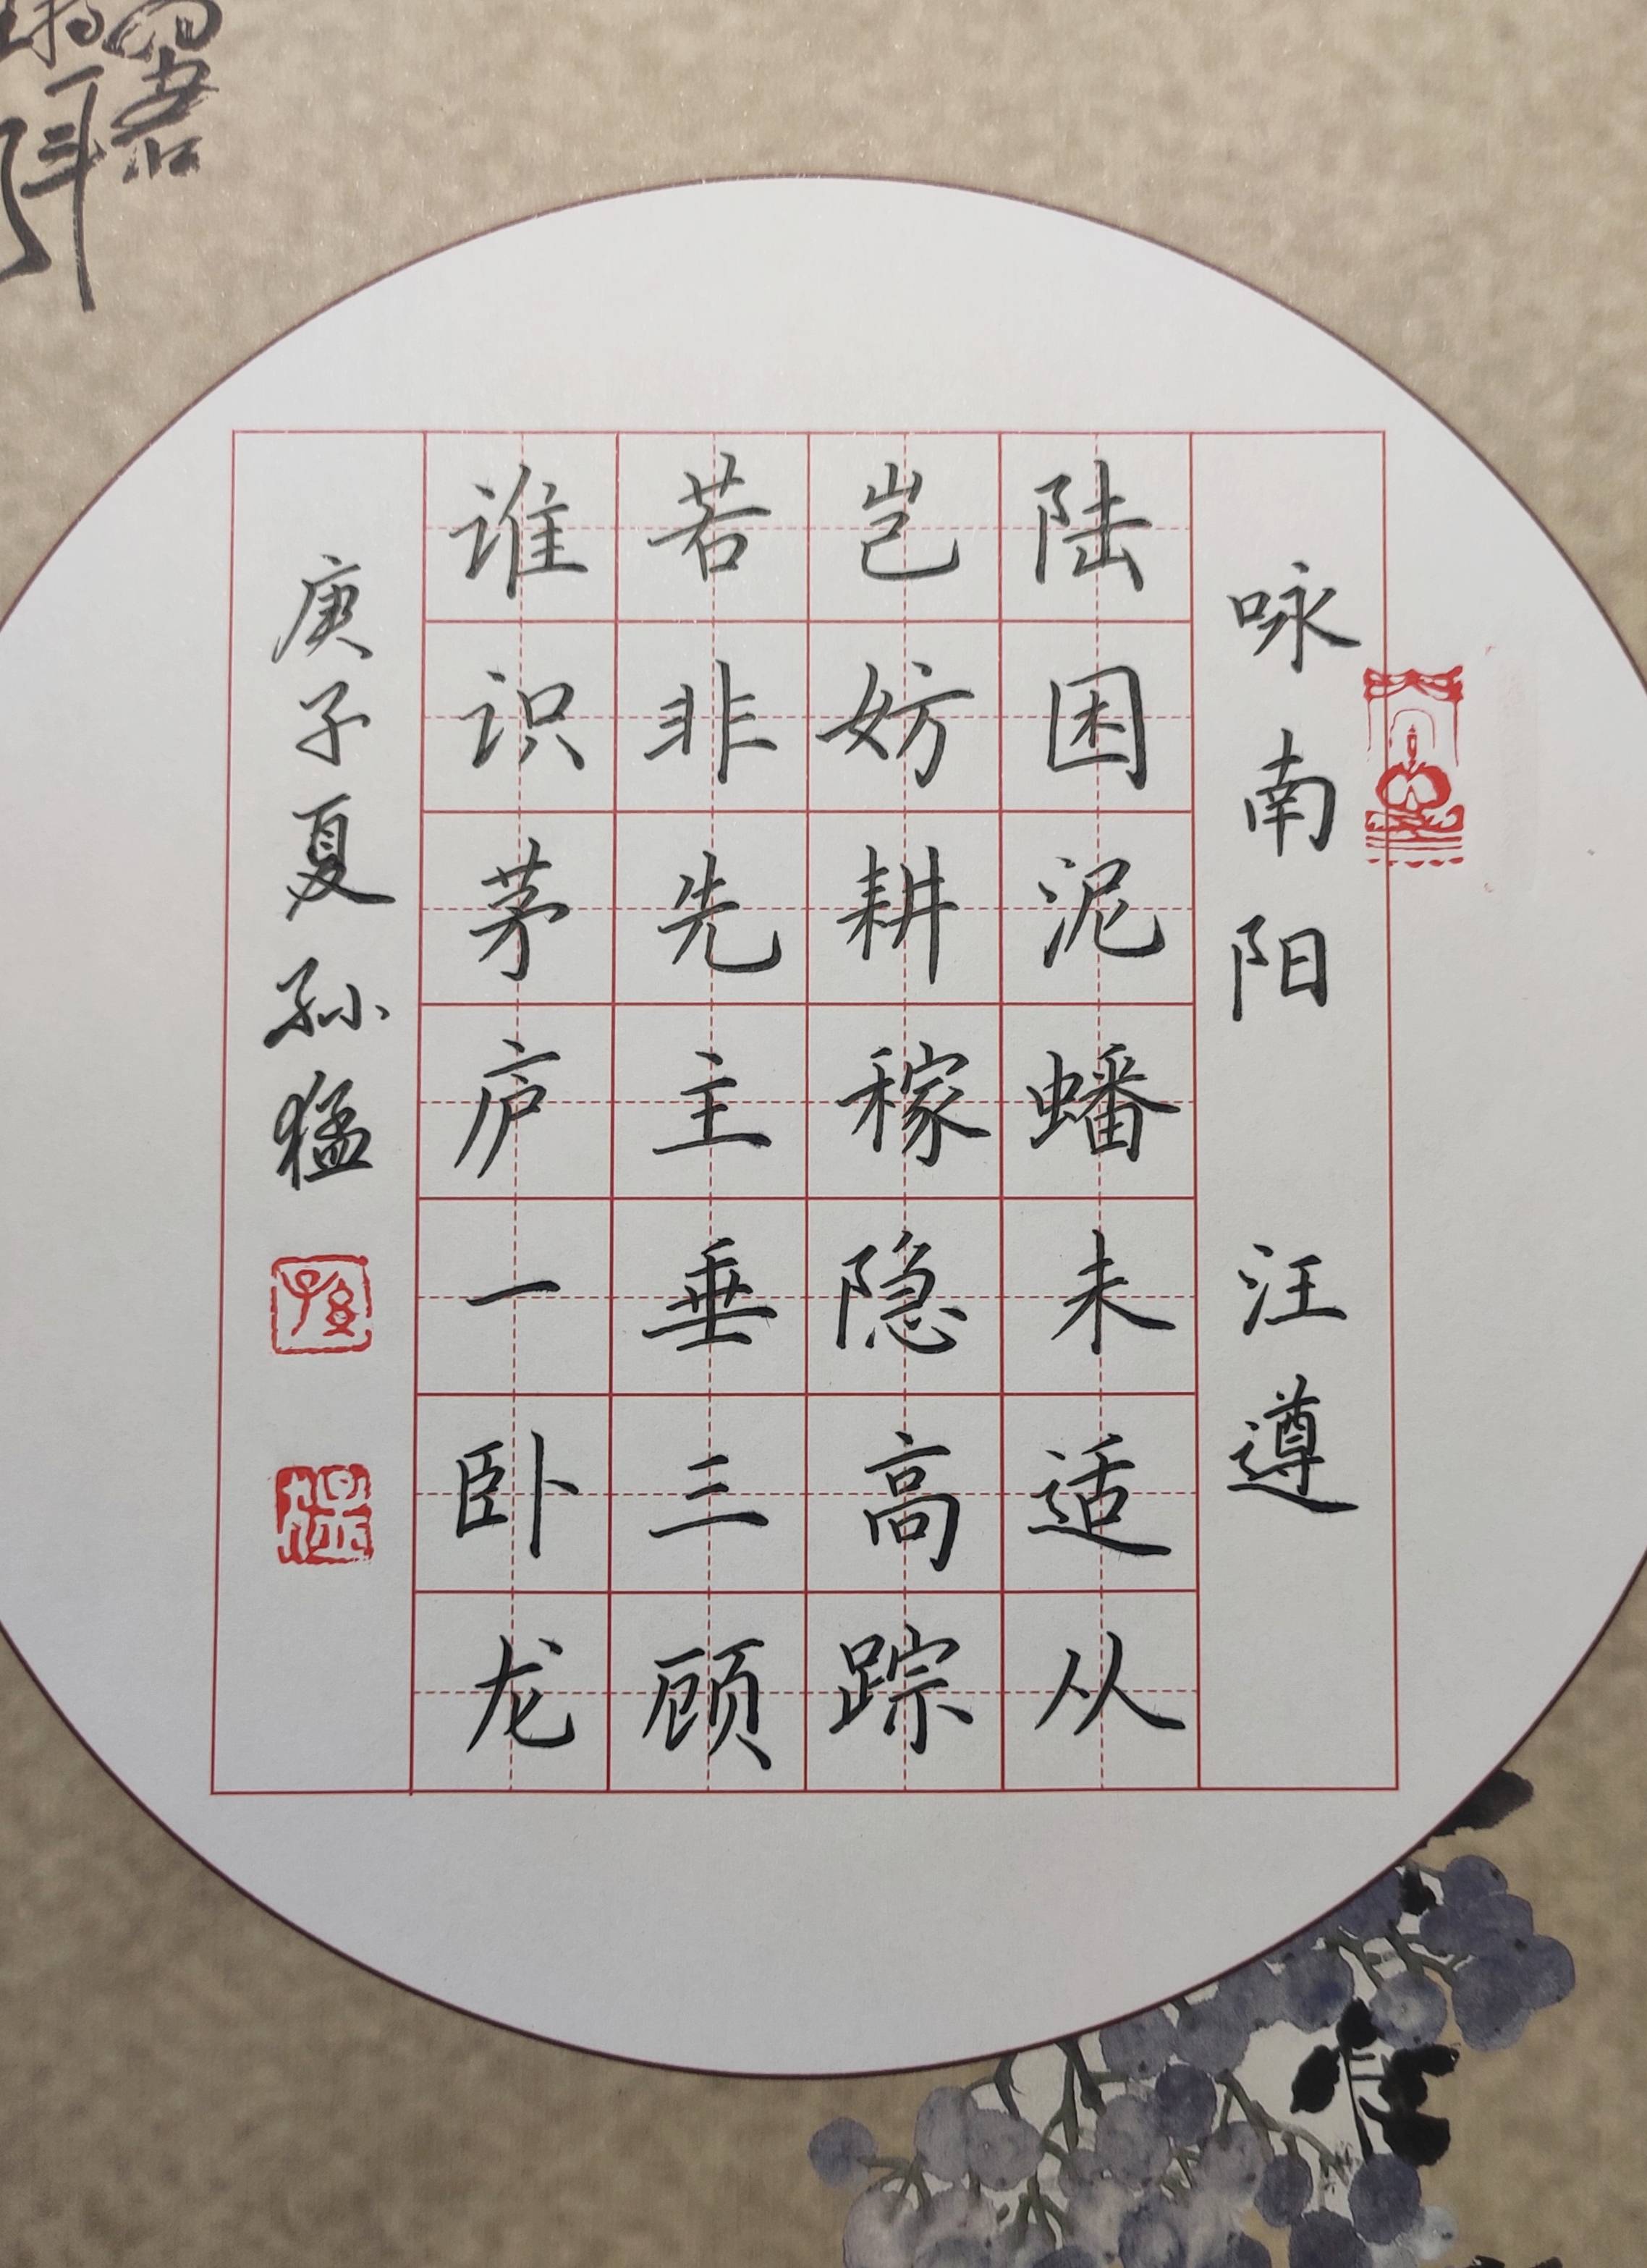 咏南阳 汪遵
陆困泥蟠未适从
岂妨耕稼隐高踪
若非先主垂三顾
谁识茅庐一卧龙
庚子夏孙猛